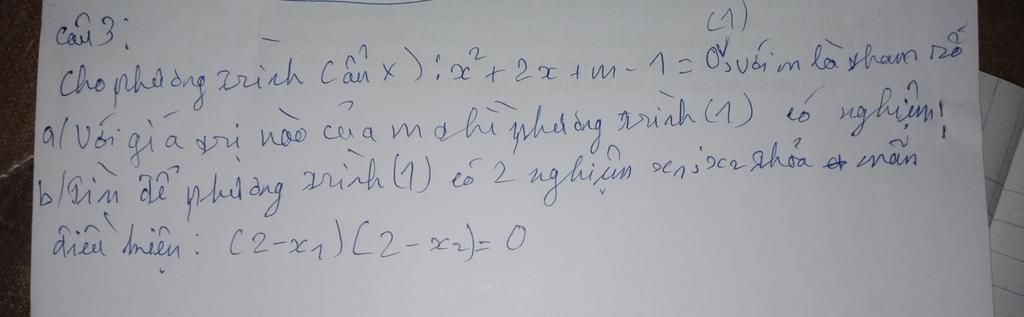 Câu 3:
(1)
Cho phương trình (ẩn x): x² + 2x + m - 1 = 0, với m là tham số
a/ Với giá trị nào của m thì phương trình (1) có nghiệm!
b/ Tìm để phương trình (1) có 2 nghiệm x₁; x₂ thỏa mãn
điều kiện: (2-x₁)(2-x₂)=0